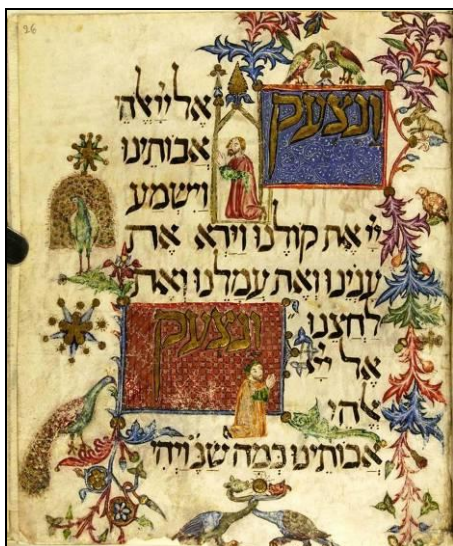 26
ונצעק
אל ייי אלהי
אבותינו
וישמע
ייי את קולנו וירא את
ענינו ואת עמלנו ואת
לחצנו
ונצעק
אל ייי
אלהי
אבותינו כמה שנ' ויהי